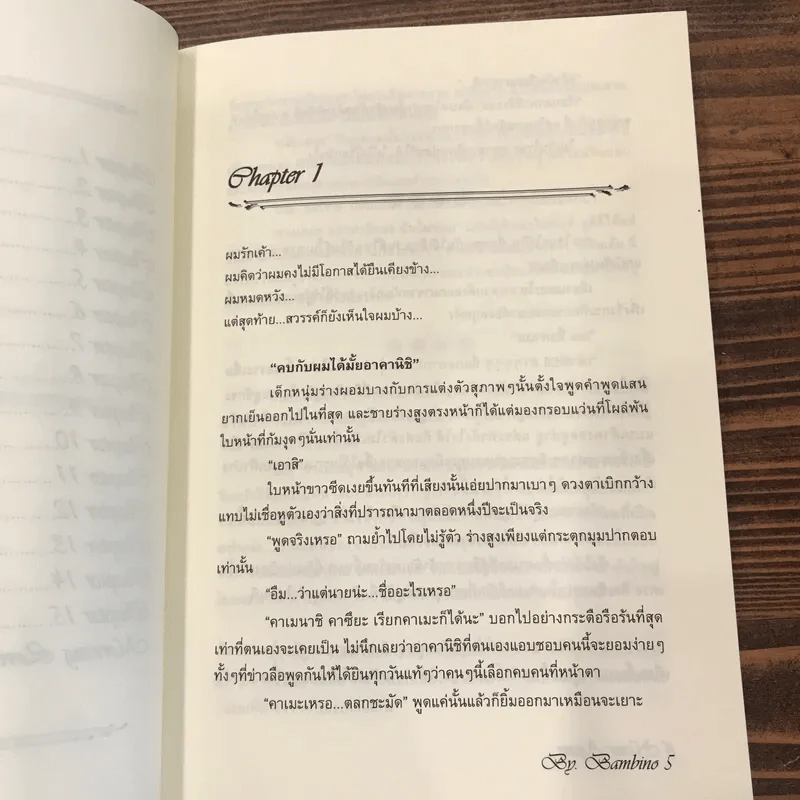 Chapter 1
ผมรักเค้า...
ผมคิดว่าผมคงไม่มีโอกาสได้ยืนเคียงข้าง...
ผมหมดหวัง...
แต่สุดท้าย...สวรรค์ก็ยังเห็นใจผมบ้าง...
“คบกับผมได้มั้ยอาคานิชิ”
เด็กหนุ่มร่างผอมบางกับการแต่งตัวสุภาพๆนั้นตั้งใจพูดคำพูดแสน
ยากเย็นออกไปในที่สุด และชายร่างสูงตรงหน้าก็ได้แต่มองกรอบแว่นที่โผล่พ้น
ใบหน้าที่ก้มงุดๆนั่นเท่านั้น
“เอาสิ”
ใบหน้าขาวซีดเงยขึ้นทันทีที่เสียงนั้นเอ่ยปากมาเบาๆ ดวงตาเบิกกว้าง
แทบไม่เชื่อหูตัวเองว่าสิ่งที่ปรารถนามาตลอดหนึ่งปีจะเป็นจริง
“พูดจริงเหรอ” ถามย้ำไปโดยไม่รู้ตัว ร่างสูงเพียงแต่กระตุกมุมปากตอบ
เท่านั้น
“อืม...ว่าแต่นายน่ะ...ชื่ออะไรเหรอ”
“คาเมนาชิ คาซึยะ เรียกคาเมะก็ได้นะ” บอกไปอย่างกระตือรือร้นที่สุด
เท่าที่ตนเองจะเคยเป็น ไม่นึกเลยว่าอาคานิชิที่ตนเองแอบชอบคนนี้จะยอมง่ายๆ
ทั้งๆที่ข่าวลือพูดกันให้ได้ยินทุกวันแท้ๆว่าคนๆนี้เลือกคบคนที่หน้าตา
“คาเมะเหรอ...ตลกชะมัด” พูดแค่นั้นแล้วก็ยิ้มออกมาเหมือนจะเยาะ
By. Bambino 5